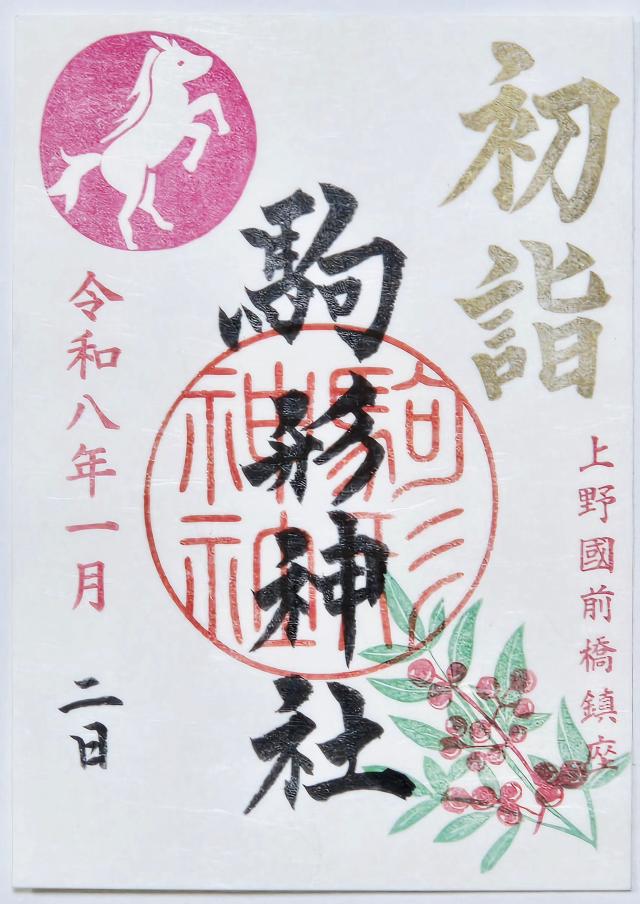 初詣
上野國前橋鎮座
駒形神社
駒形神社
令和八年一月
二日